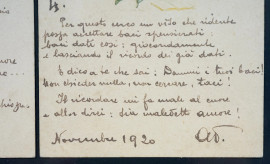 4.
Per questo cerco un viso che ridente
possa accettare baci spensierati:
baci dati così; giocondamente
e lasciando il ricordo di già dati.
E dico a te che sai: Dammi i tuoi baci!
Non chieder nulla, non temere, taci!
Il ricordare mi fa male al cuore
e altro dirci: sia maledetto amore!
Novembre 1920